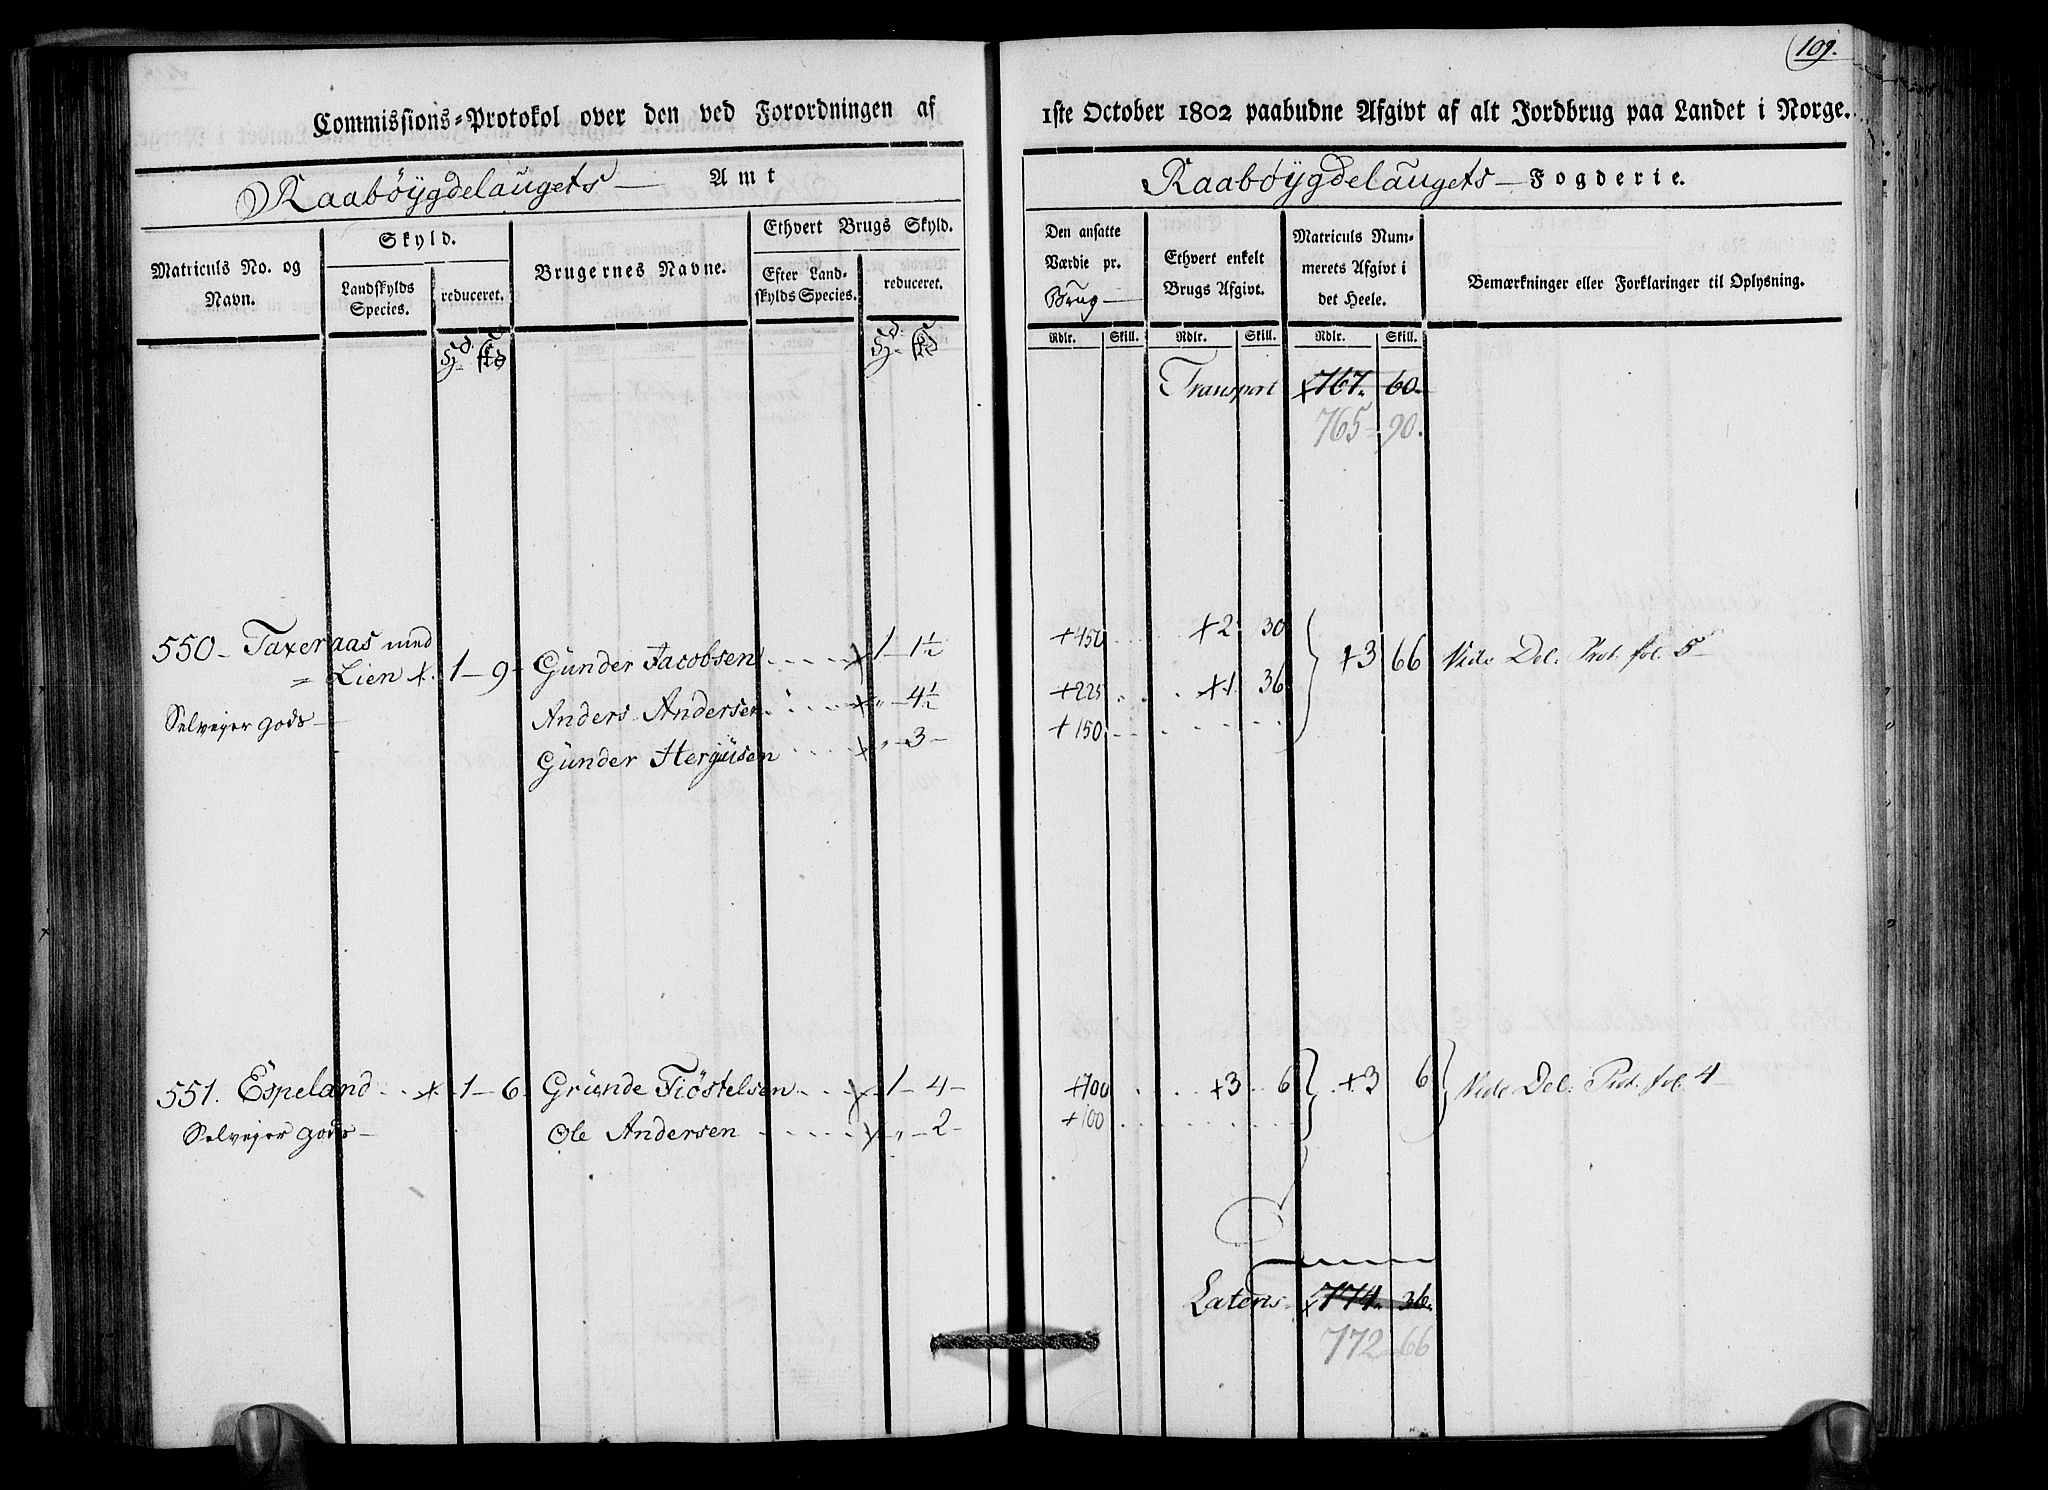 109.
Commissions-Protokol over den ved Forordningen af 1ste October 1802 paabudne Afgivt af alt Jordbrug paa Landet i Norge.
Raabøygdelaugets Amt
Raabøygdelaugets Fogderie.
Matriculs No. og Navn.
Skyld.
Landskylds Species.
reduceret.
Brugernes Navne.
Ethvert Brugs Skyld.
Efter Landskylds Species.
reduceret.
Den ansatte Værdie pr. Brug
Ethvert enkelt Brugs Afgivt.
Matriculs Nummerets Afgivt i det Heele.
Bemærkninger eller Forklaringer til Oplysning.
Rdlr. Skill. Rdlr. Skill. Rdlr. Skill.
Transport 767. 60.
765 = 90.
550 - Taxeraas med
= Lien 1 - 9 - Gunder Jacobsen 1 1½ +450 +2 30 +3 66 Vide Del. Prot. fol. 5
Selveyer gods -
Anders Andersen " 4½ +225 +1 36
Gunder Hergiusen " - 3 - +150
551. Espeland 1 - 6 Grunde Tiöstelsen 1 - 4 - +700 +3 6 +3 6 Vide Del. Prot. fol. 4
Selveyer gods -
Ole Andersen " - 2 - +100
Lateris 774. 36.
772 - 66